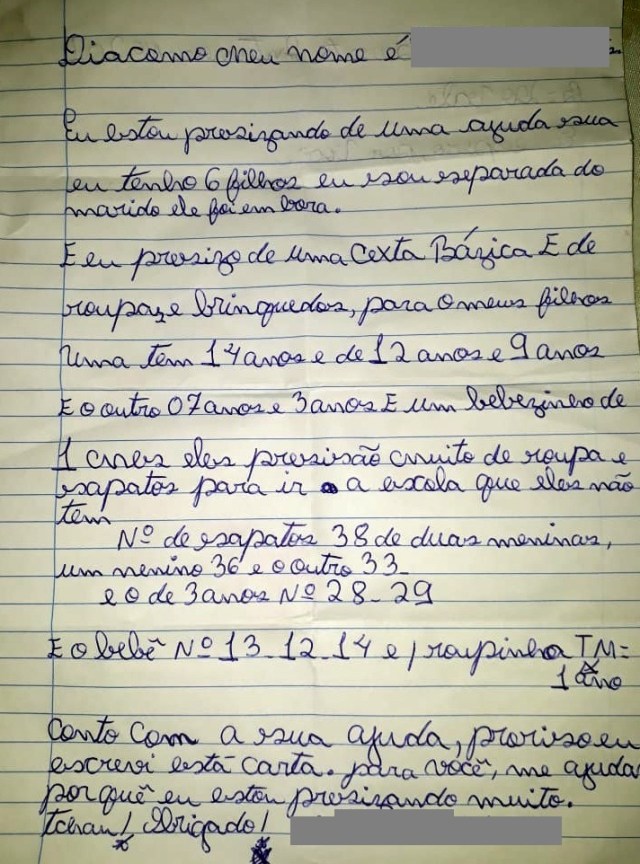 Diacomo Meu nome é
Eu estou presizando de uma ajuda sua
eu tenho 6 filhos eu sou separada do
marido ele foi em bora.
E eu presizo de uma Cexta Bázica E de
roupaz e brinquedos, para o meus filhos
Uma tem 14 anos e de 12 anos e 9 anos
E o outro 07 anos e 3 anos E um bebezinho de
1 mes eles presisão muito de roupa e
sapatos para ir a escola que eles não
tem
Nº de sapatos 38 de duas meninas,
um menino 36 e o outro 33
e o de 3 anos Nº 28-29
E o bebê Nº 13-12-14 e roupinha TM=
1 ano
Conto Com a sua ajuda, porisso eu
escrevi está carta. para você, me ajuda
por quê eu estou presizando muito.
Tchau! Obrigado!